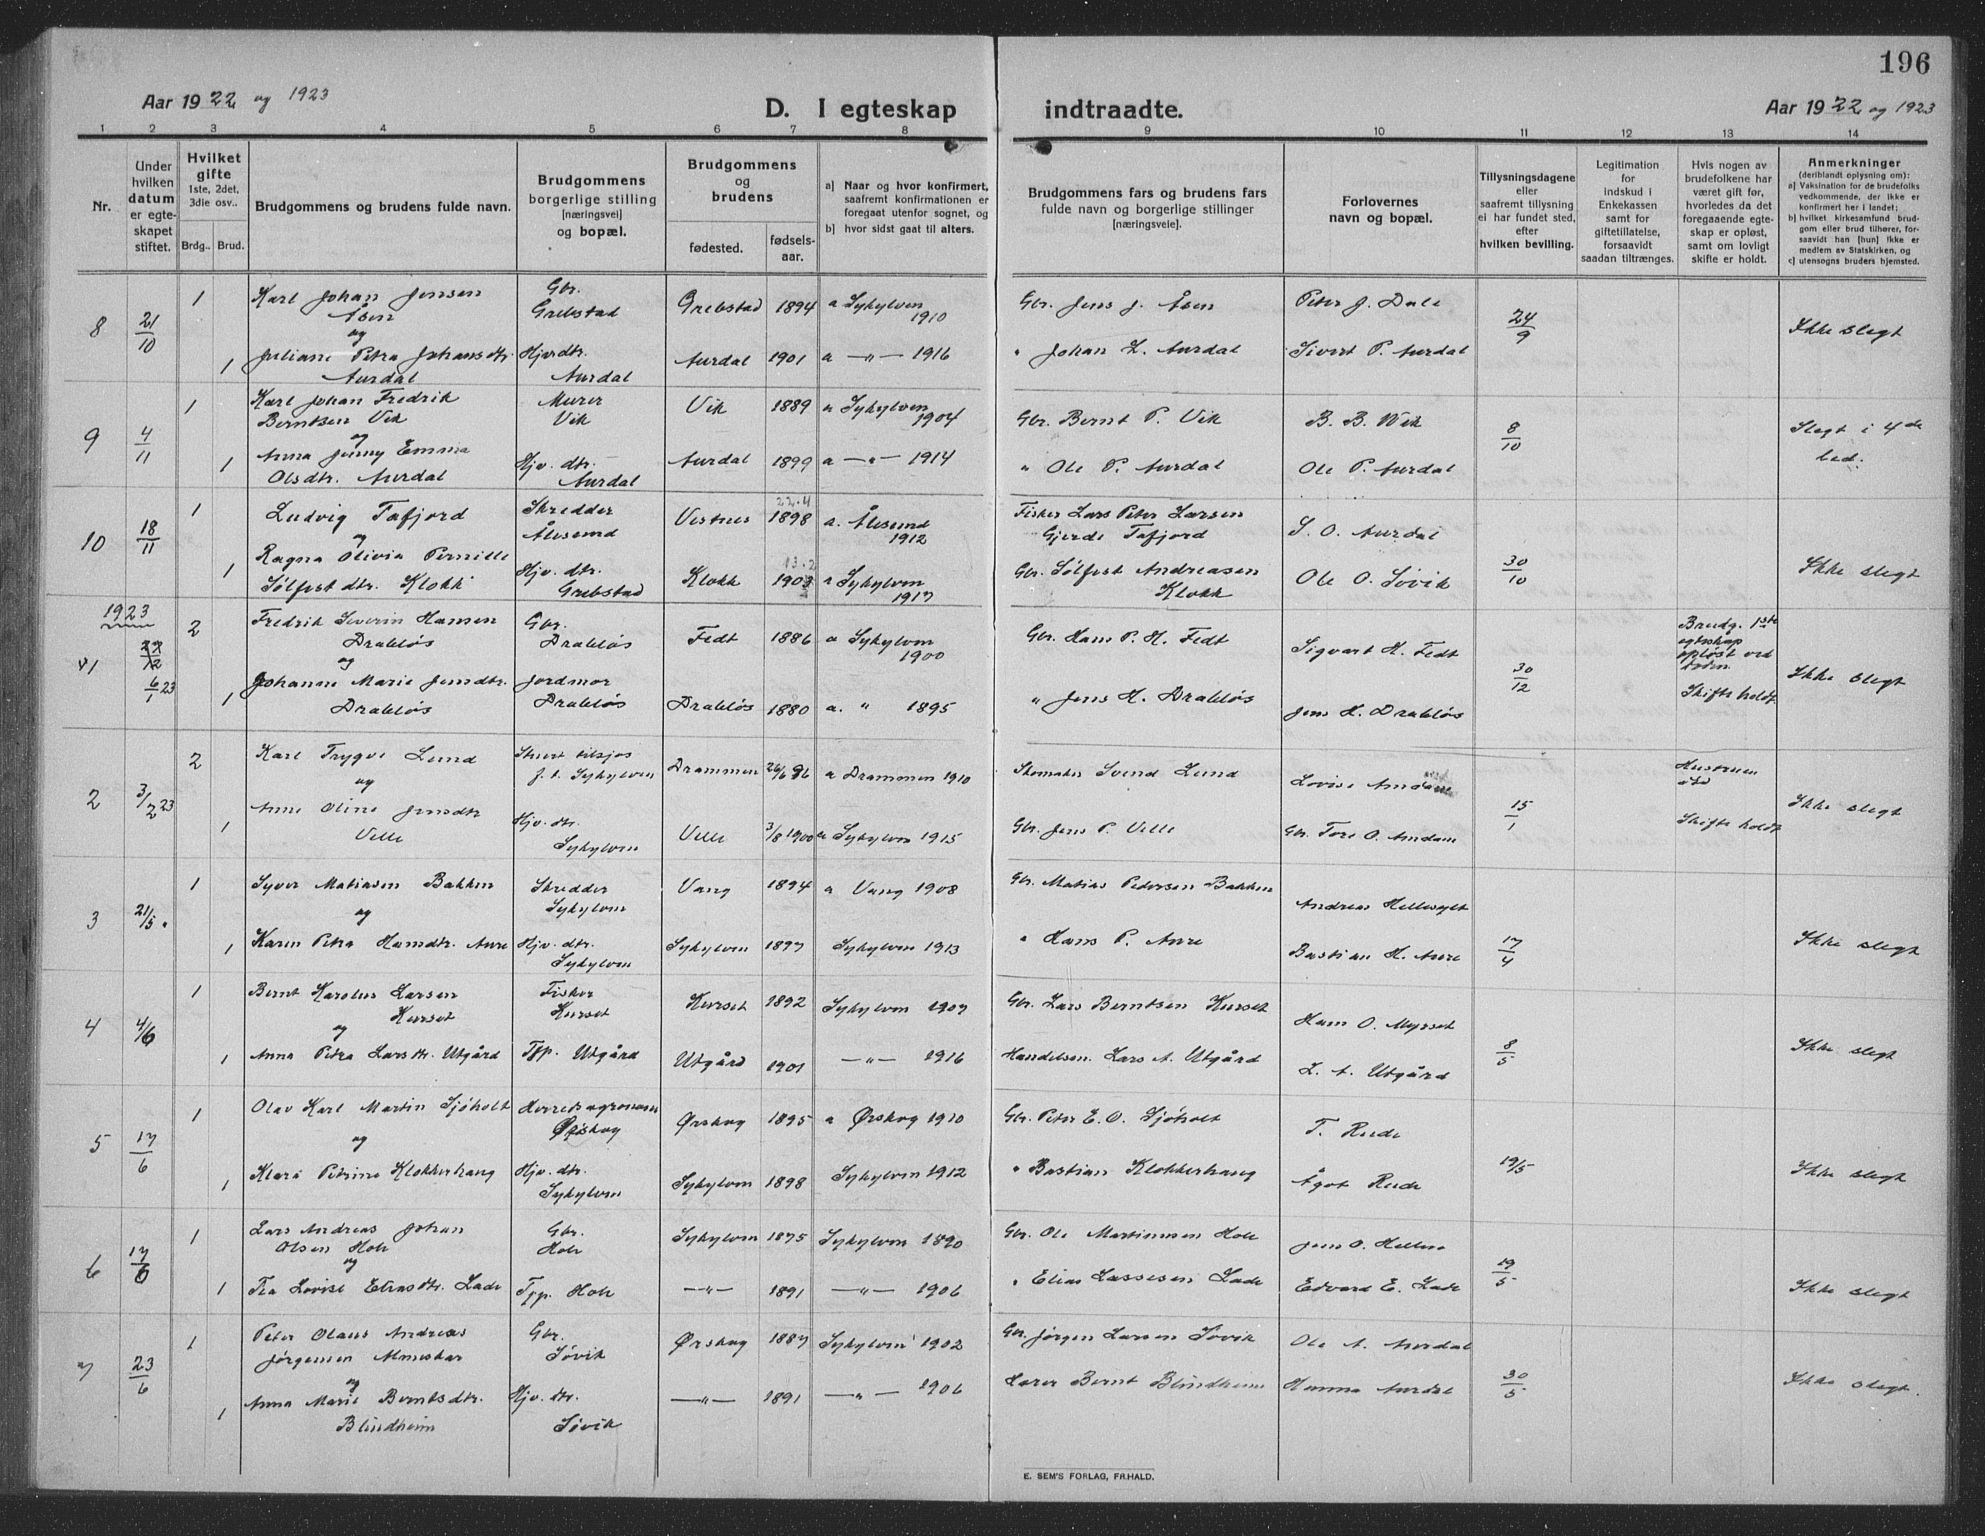 196
Aar 1922 og 1923
D. I egteskap indtraadte.
Aar 1922 og 1923
1 2 3 4 5 6 7 8 9 10 11 12 13 14
Nr.
Under hvilken datum er egteskapet stiftet.
Hvilket gifte
1ste, 2det, 3die osv..
Brdg.. Brud.
Brudgommens og brudens fulde navn.
Brudgommens borgerlige stilling [næringsvei] og bopæl.
Brudgommens og brudens
fødested. fødsels-aar.
a] Naar og hvor konfirmert, saafremt konfirmationen er foregaat utenfor sognet, og
b] hvor sidst gaat til alters.
Brudgommens fars og brudens fars fulde navn og borgerlige stillinger [næringsveie].
Forlovernes navn og bopæl.
Tillysningsdagene eller saafremt tillysning ei har fundet sted, efter hvilken bevilling.
Legitimation for indskud i Enkekassen samt for giftetillatelse, forsaavidt saadan tiltrænges.
Hvis nogen av brudefolkene har været gift før, hvorledes da det foregaaende egteskap er opløst, samt om lovligt skifte er holdt.
Anmerkninger
(deriblandt oplysning om):
a] Vaksination for de brudefolks vedkommende, der ikke er konfirmert her i landet;
b] hvilket kirkesamfund brudgom eller brud tilhører, forsaavidt han [hun] ikke er medlem av Statskirken, og
c] utensogns bruders hjemsted.
8 21/10 1 Karl Johan Jensen Åsen Gbr. Grebstad Grebstad 1894 a Sykylven 1910 Gbr. Jens J. Åsen Peter J. Dale 24/9 Ikke slegt
og
1 Juliane Petra Johansdtr. Aurdal Hjv. dtr. Aurdal Aurdal 1901 a —"— 1916 " Johan L. Aurdal Sivert P. Aurdal
9 4/11 1 Karl Johan Fredrik Berntsen Vik Murer Vik Vik 1889 a Sykylven 1904 Gbr. Bernt P. Vik B. B. Wik 8/10 Slegt i 4de led.
og
1 Anna Jenny Emma Olsdtr. Aurdal Hjv. dtr. Aurdal Aurdal 1899 a —"— 1914 " Ole P. Aurdal Ole P. Aurdal
10 18/11 1 Ludvig Tafjord Skredder Ålesund Vestnes 22.4 1898 a. Ålesund 1912 Fisker Lars Peter Larsen Gjerde Tafjord S. O. Aurdal
og
1 Ragna Olivia Pernille Sølfestdtr. Klokk Hjv. dtr. Grebstad Klokk 13.2 1903 a Sykylven 1917 Gbr. Sølfest Andreasen Klokk Ole O. Søvik 30/10 Ikke slegt
1923
1 6/1 23 2 Fredrik Severin Hansen Drabløs Gbr. Drabløs Fedt 1886 a Sykylven 1900 Gbr. Hans P. H. Fedt Sigvart H. Fedt 30/12 Brudg. 1ste egteskap opløst ved døden. Skifte holdt Ikke slegt
og
1 Johanne Marie Jensdtr. Drabløs Jordmor Drabløs Drabløs 1880 a. " 1895 " Jens H. Drabløs Jens H. Drabløs
2 3/2 23 2 Karl Trygve Lund f. t. Sykylven Drammen 26/6 86 a Drammen 1910 Skomaker Svend Lund Lovise Amdam 15/1 Hustruen død Skifte holdt Ikke slegt
og
1 Anne Oline Jensdtr Velle Hjv. dtr. Sykylven Velle 3/8 1900 a Sykylven 1915 Gbr. Jens P. Velle Gbr. Tore O. Amdam
3 21/5 1 Syver Matiasen Bakken Skredder Sykylven Vang 1894 a Vang 1908 Gbr. Matias Pedersen Bakken Andreas Hellesylt
og
1 Karen Petra Hansdtr. Aure Hjv. dtr. Sykylven Sykylven 1897 Sykylven 1913 " Hans P. Aure Bastian H. Aure 17/4 Ikke slegt
4 4/6 1 Bernt Karolus Larsen Kurset Fisker Kurset Kurset 1892 Sykylven 1907 Gbr. Lars Berntsen Kurset Hans O. Myrset
og
1 Anna Petra Larsdtr. Utgård Tjp. Utgård Utgård 1901 —"— 1916 Handelsm. Lars A. Utgård L. A. Utgård 8/5 Ikke slegt
5 17/6 1 Olav Karl Martin Sjøholt Herredsagronom Ørskog Ørskog 1895 a Ørskog 1910 Gbr. Peter E. O. Sjøholt T. Rude
og
1 Klara Petrine Klokkerhaug Hjv. dtr. Sykylven Sykylven 1898 Sykylven 1912 " Bastian Klokkerhaug Ågot Rude 19/5 Ikke slegt
6 17/6 1 Lars Andreas Johan Olsen Hole Gbr. Hole Sykylven 1875 Sykylven 1890 Gbr. Ole Martinusen Hole Jens O. Hellen
og
1 Tea Lovise Eliasdtr. Lade Tjp. Hole —"— 1891 —"— 1906 " Elias Lassesen Lade Edvard E. Lade 19/5 Ikke slegt
7 23/6 1 Peter Olaus Andreas Jørgensen Almeskar Gbr. Søvik Ørskog 1887 Sykylven 1902 Gbr. Jørgen Larsen Søvik Ole A. Aurdal
og
1 Anna Marie Berntsdtr. Blindheim Hjv. dtr. Søvik —"— 1891 —"— 1906 Lærer Bernt Blindheim Hanna Aurdal 30/5 Ikke slegt.
E. SEM'S FORLAG, FR.HALD.